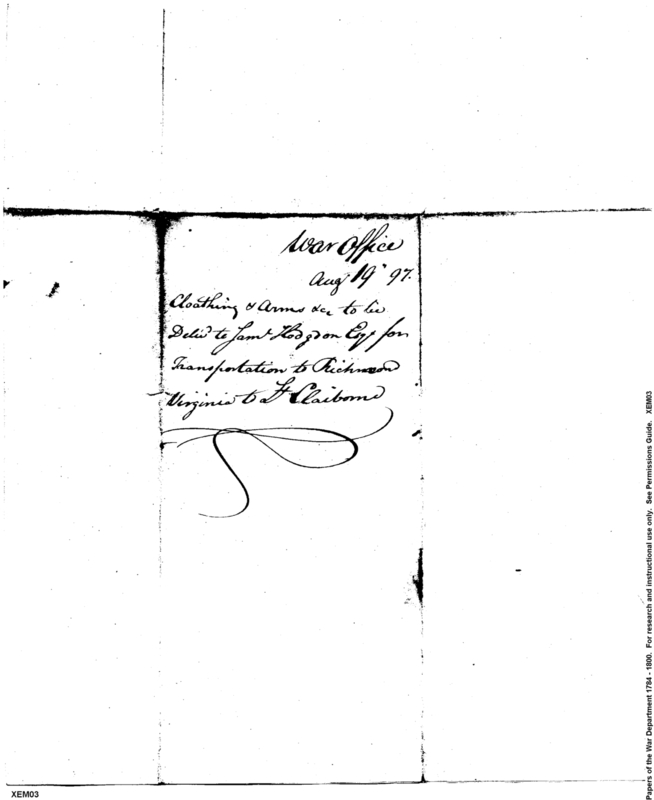 War Office
Augt 19th 97.
Cloathing & Arms &c to be
Delivd to Saml Hodgdon Esqr for
Transportation to Richmond
Virginia to Lt Claiborne
Papers of the War Department 1784 - 1800. For research and instructional use only. See Permissions Guide. XEM03
XEM03